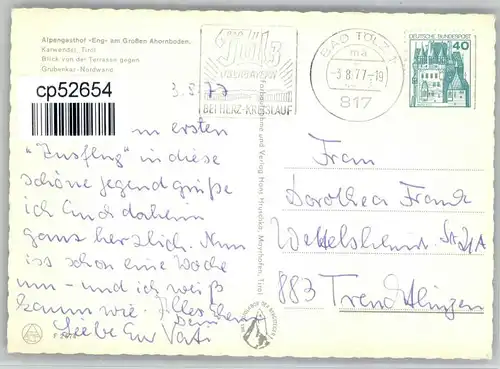 Alpengasthof -Eng- am Großen Ahornboden,
Karwendel, Tirol
Blick von der Terrasse gegen
Grubenkar-Nordwand
cp52654
3.8.77
Bad Tölz
OBERBAYERN
BEI HERZ-KREISLAUF
BAD TÖLZ 1
ma
-3.8.77-19
817
DEUTSCHE BUNDESPOST
40
Vom ersten
"Ausflug" in diese
schöne Gegend grüße
ich Euch daheim
ganz herzlich. Nun
iss schon eine Woche
um - und ich weiß
kaum wie. Alles Liebe
Euer Vati
und Verlag Hans Hruschka, Mayrhofen, Tirol
Frau
Dorothea Frank
Wettelsheimer Str.
883 Treuchtlingen